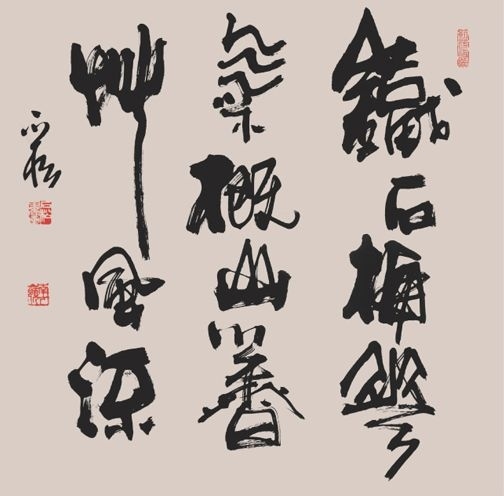 鐵石梅花
氣概山川香
艸風流